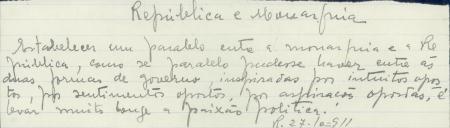 República e Monarquia
Estabelecer um paralelo entre a monarquia e a Re
pública, como se paralelo pudesse haver entre as
duas formas de governo, inspiradas por intuitos opos
tos, por sentimentos opostos, por aspirações opostas, é
levar muito longe a paixão politica.
R. 27-10-911